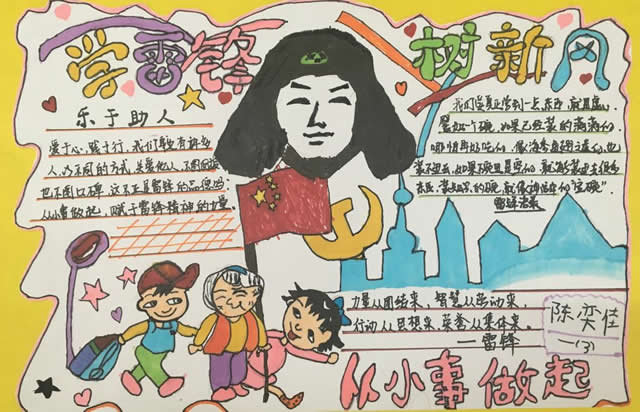 学雷锋 树新风
乐于助人
爱于心,践于行,我们
人 不同的方式,关爱他人,不同的
也不同口碑,这 正是雷锋的品德
从小事做起,赋于雷锋精神的力量。
我们 学到一点东西,就要虚心,
譬如一个碗,如果已经装的满满的,
哪怕再好吃的,像海参鱼翅这些,也
装不进去,如果 碗里是空的,就能装进去很多
东西,装知识的碗,就像神话中的“宝碗”
雷锋名言
力量从团结来,智慧从劳动来,
行动从思想来,荣誉从集体来。
—雷锋
陈奕佳
一(3)
从小事做起